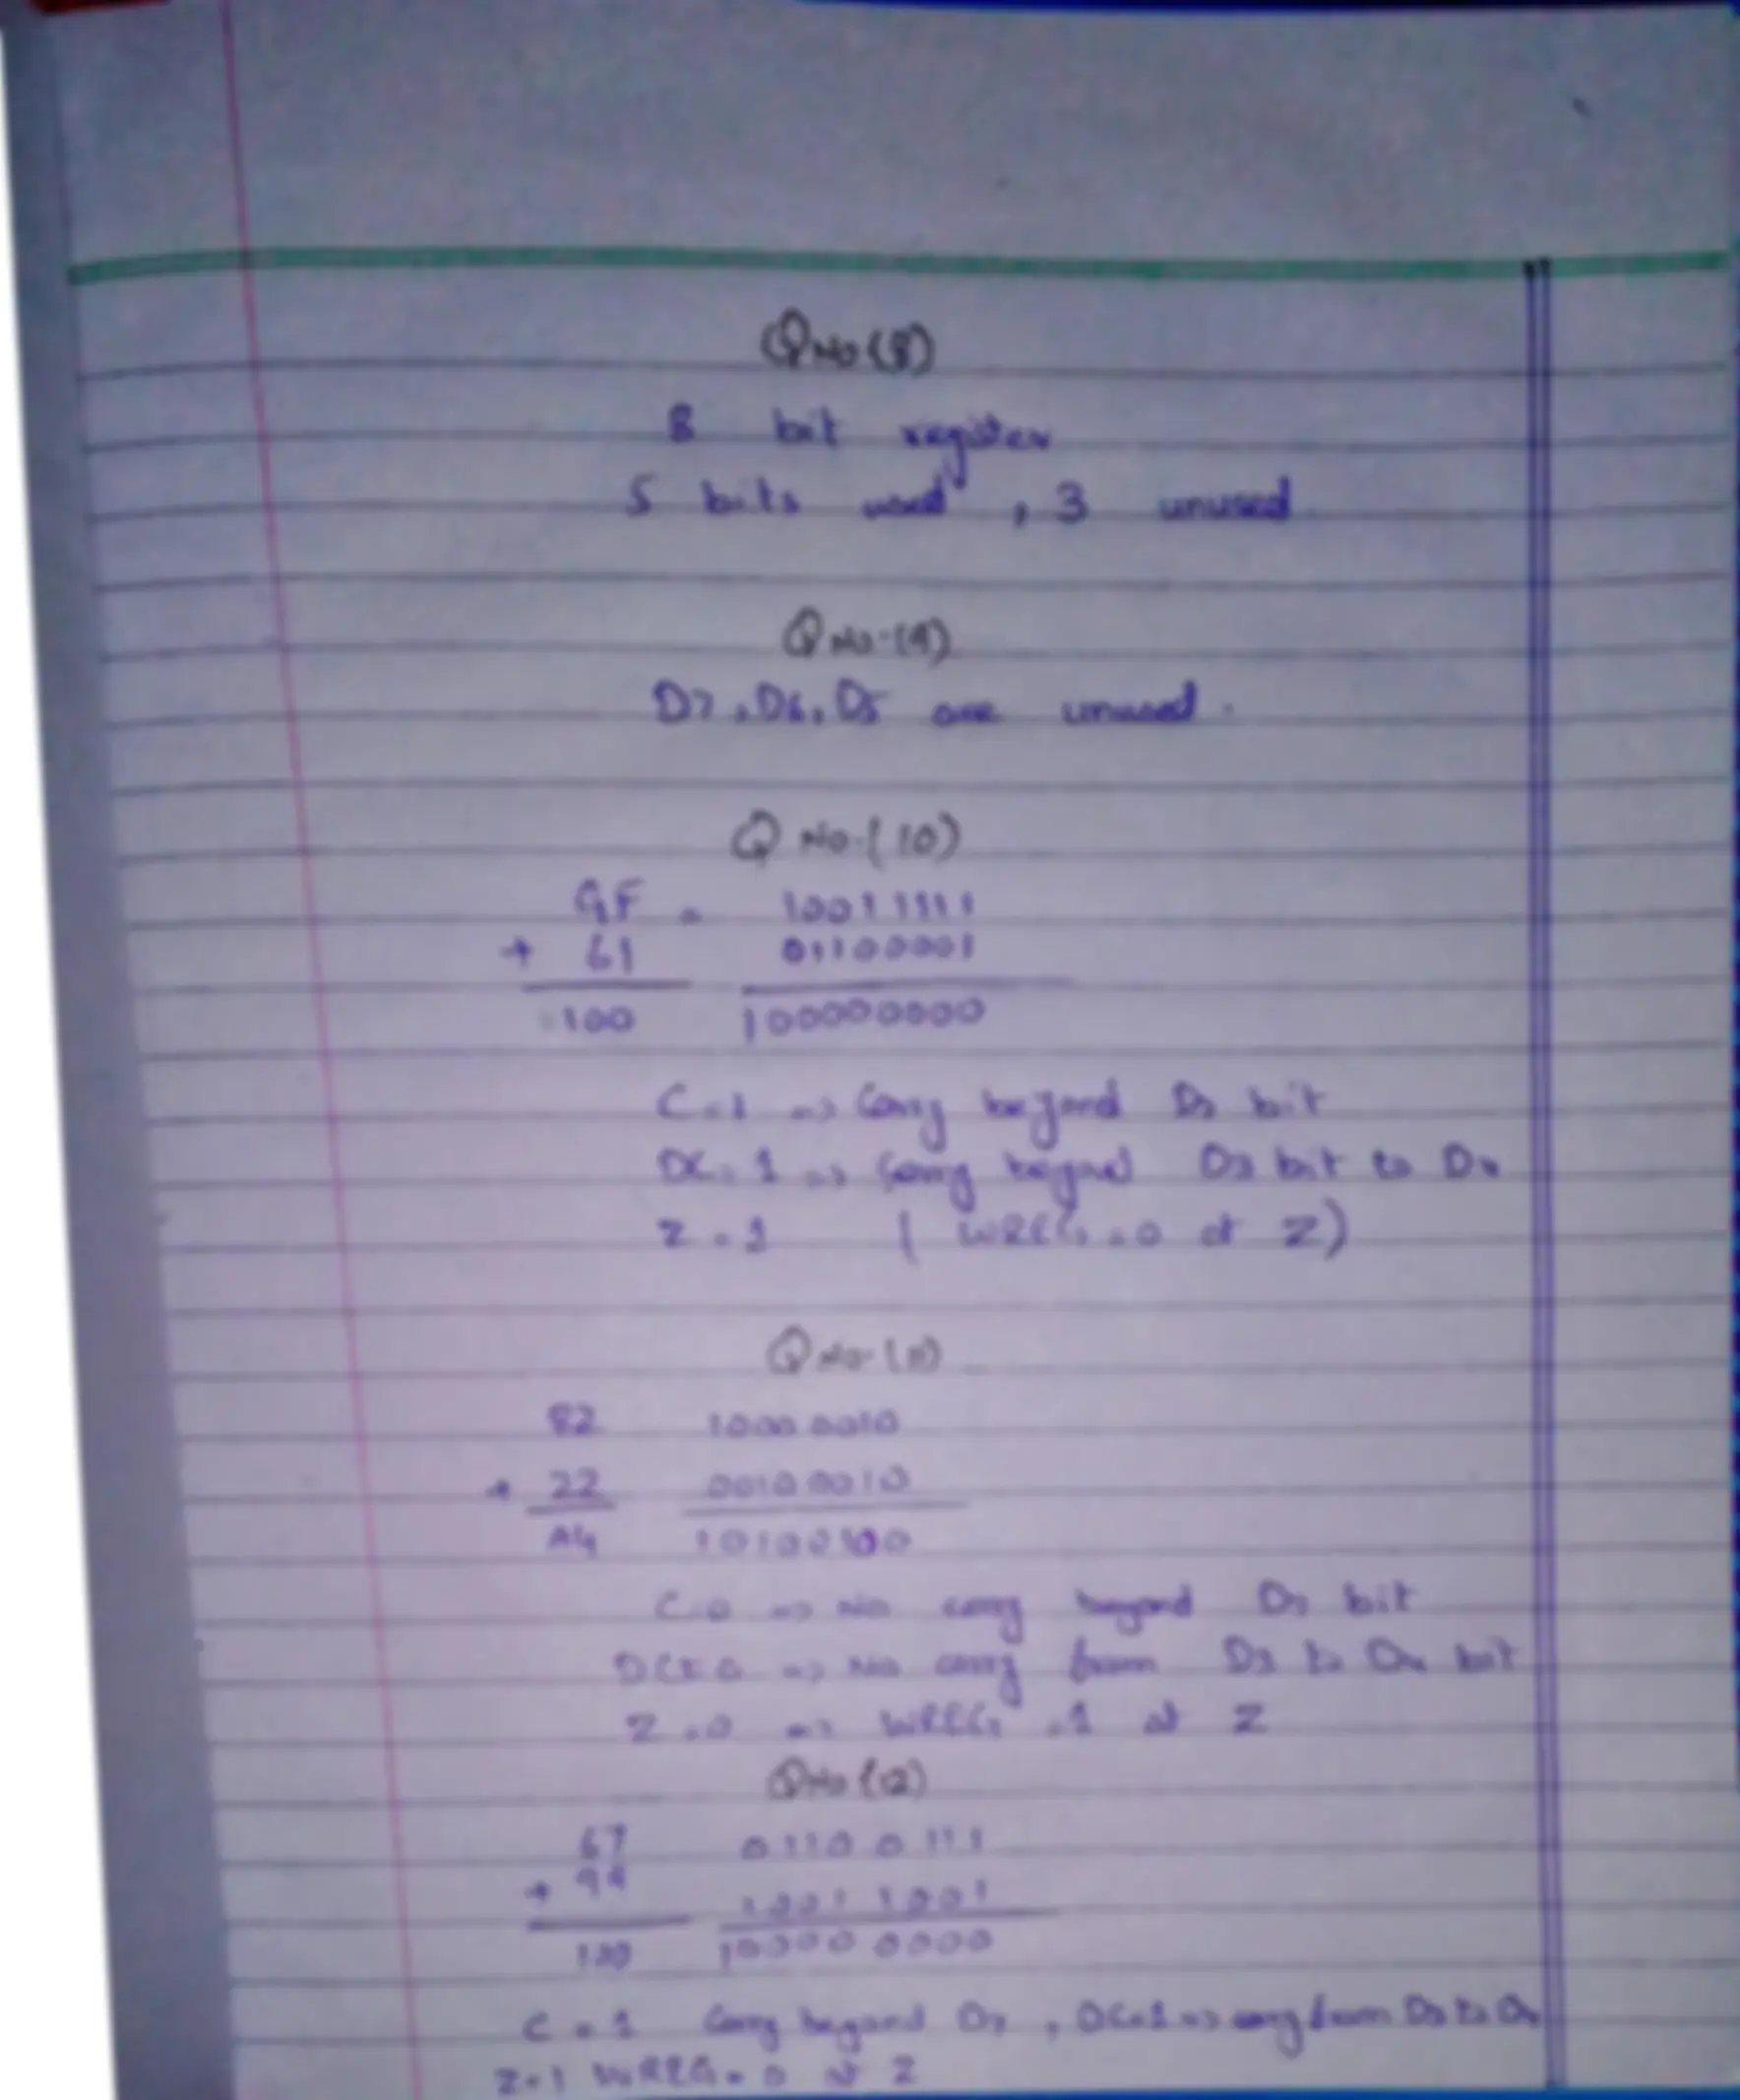 Q No (8)
8 bit register
5 bits used , 3 unused
Q No. (9)
D7 , D6 , D5 are unused .
Q No. (10)
9F = 10011111
+ 61 01100001
100 100000000
C = 1 => Carry beyond D7 bit
DC = 1 => Carry beyond D3 bit to D4
Z = 1 ( WREG = 0 at Z)
Q No. (11)
82 1000 0010
+ 22 0010 0010
A4 10100100
C = 0 => No carry beyond D7 bit
DC = 0 => No carry from D3 to D4 bit
Z = 0 => WREG = 1 at Z
Q No (12)
67 0110 0111
+ 99 1001 1001
100 10000 0000
C = 1 Carry beyond D7 , DC = 1 => carry from D3 to D4
Z = 1 WREG = 0 at Z